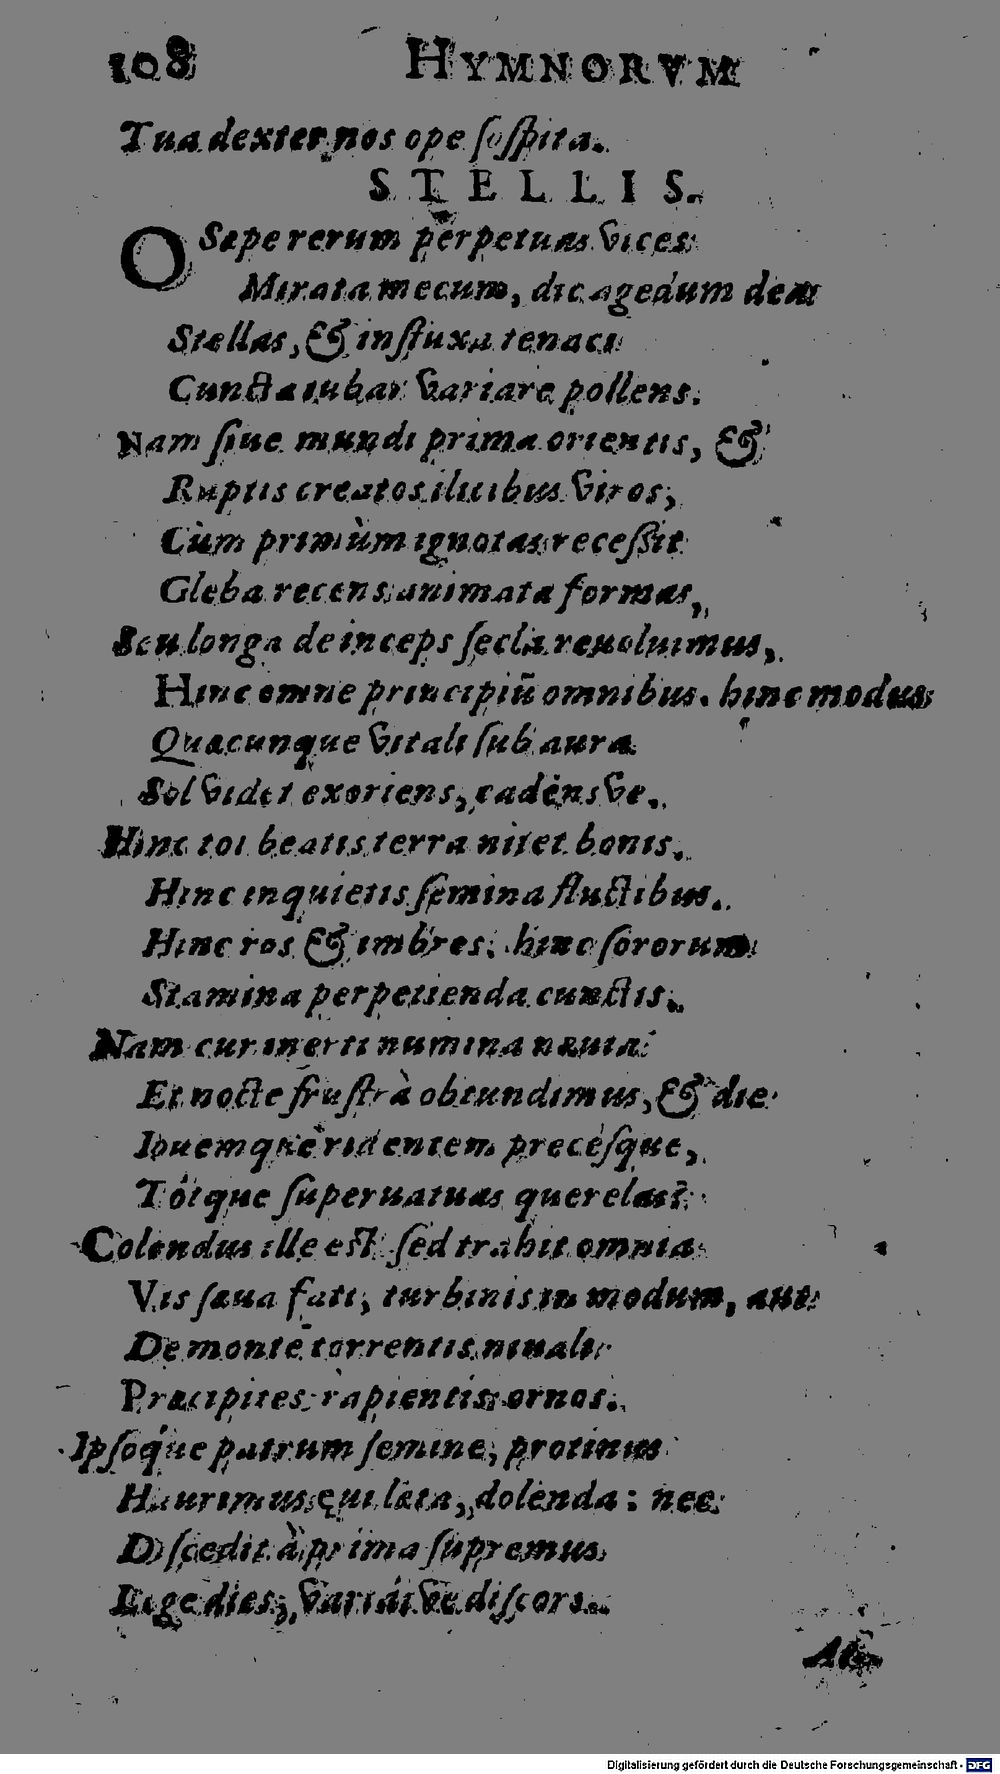 108 HYMNORVM
Tua dexter nos ope ſoſpita.
STELLIS.
O Sæpe rerum perpetuas vices
Mirata mecum, dic agedum dea
Stellas, & influxu tenaci
Cuncta iubar variare pollens.
Nam ſiue mundi prima orientis, &
Ruptis creatos ilicibus viros,
Cùm primùm ignotas receſſit
Gleba recens animata formas,
Seu longa deinceps ſecla reuoluimus,
Hinc omne principiũ omnibus. hinc modus
Quæcunque vitali ſub aura
Sol videt exoriens, cadénsve.
Hinc tot beatis terra nitet bonis.
Hinc inquietis ſemina fluctibus.
Hinc ros & imbres: hinc ſororum
Stamina perpetienda cunctis.
Nam cur inerti numina nænia
Et nocte fruſtrà obtundimus, & die
Iouemque ridentem precéſque,
Tótque ſuperuatuas querelas?
Colendus ille eſt: ſed trahit omnia
Vis ſæua fati, turbinis in modum, aut
De monte torrentis niuali
Præcipites rapientis ornos.
Ipſóque patrum ſemine, protinus
Haurimus læta, dolenda: nec
Diſcedit à prima ſupremus
Lege dies, variáive diſcors.
At
Digitalisierung gefördert durch die Deutsche Forschungsgemeinschaft - DFG